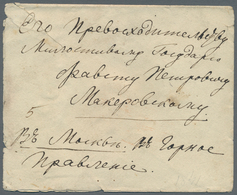 Его Превосходительству
Милостивому Государю
Петровичу
Макеровскому
5
въ Москвѣ. въ Горное
Правленіе.